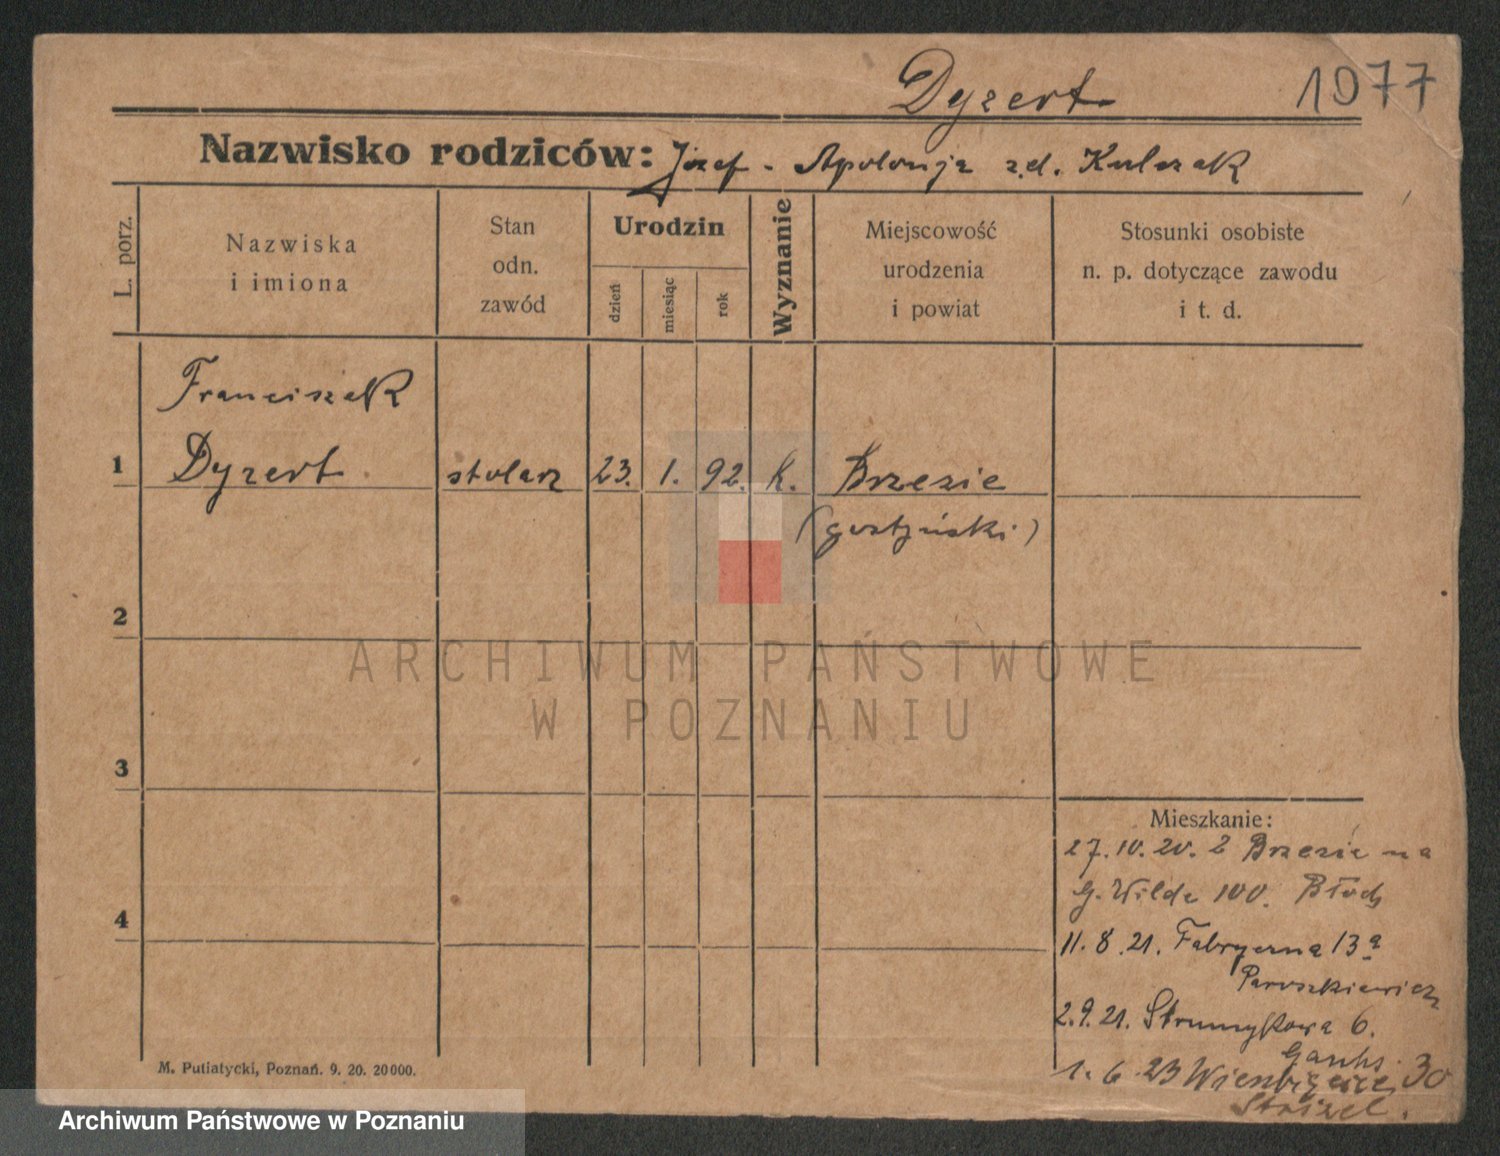 Dyzert 1977
Nazwisko rodziców: Józef - Apolonja z d. Kulczak
L. porz.
Nazwiska
i imiona
Stan
odn.
zawód
Urodzin
dzień
miesiąc
rok
Wyznanie
Miejscowość
urodzenia
i powiat
Stosunki osobiste
n. p. dotyczące zawodu
i t. d.
Franciszek
1 Dyzert stolarz 23. 1. 92. k. Brzezie
(gostyński)
2
ARCHIWUM PAŃSTWOWE
W POZNANIU
3
Mieszkanie:
27.10.20. z Brzezie na
G. Wilda 100. Błoch
4
11.8.21. Fabryczna 13a
Paruszkiewicz
2.9.21. Strumykowa 6.
1.6.23 30
M. Putiatycki, Poznań. 9. 20. 20000.
Archiwum Państwowe w Poznaniu